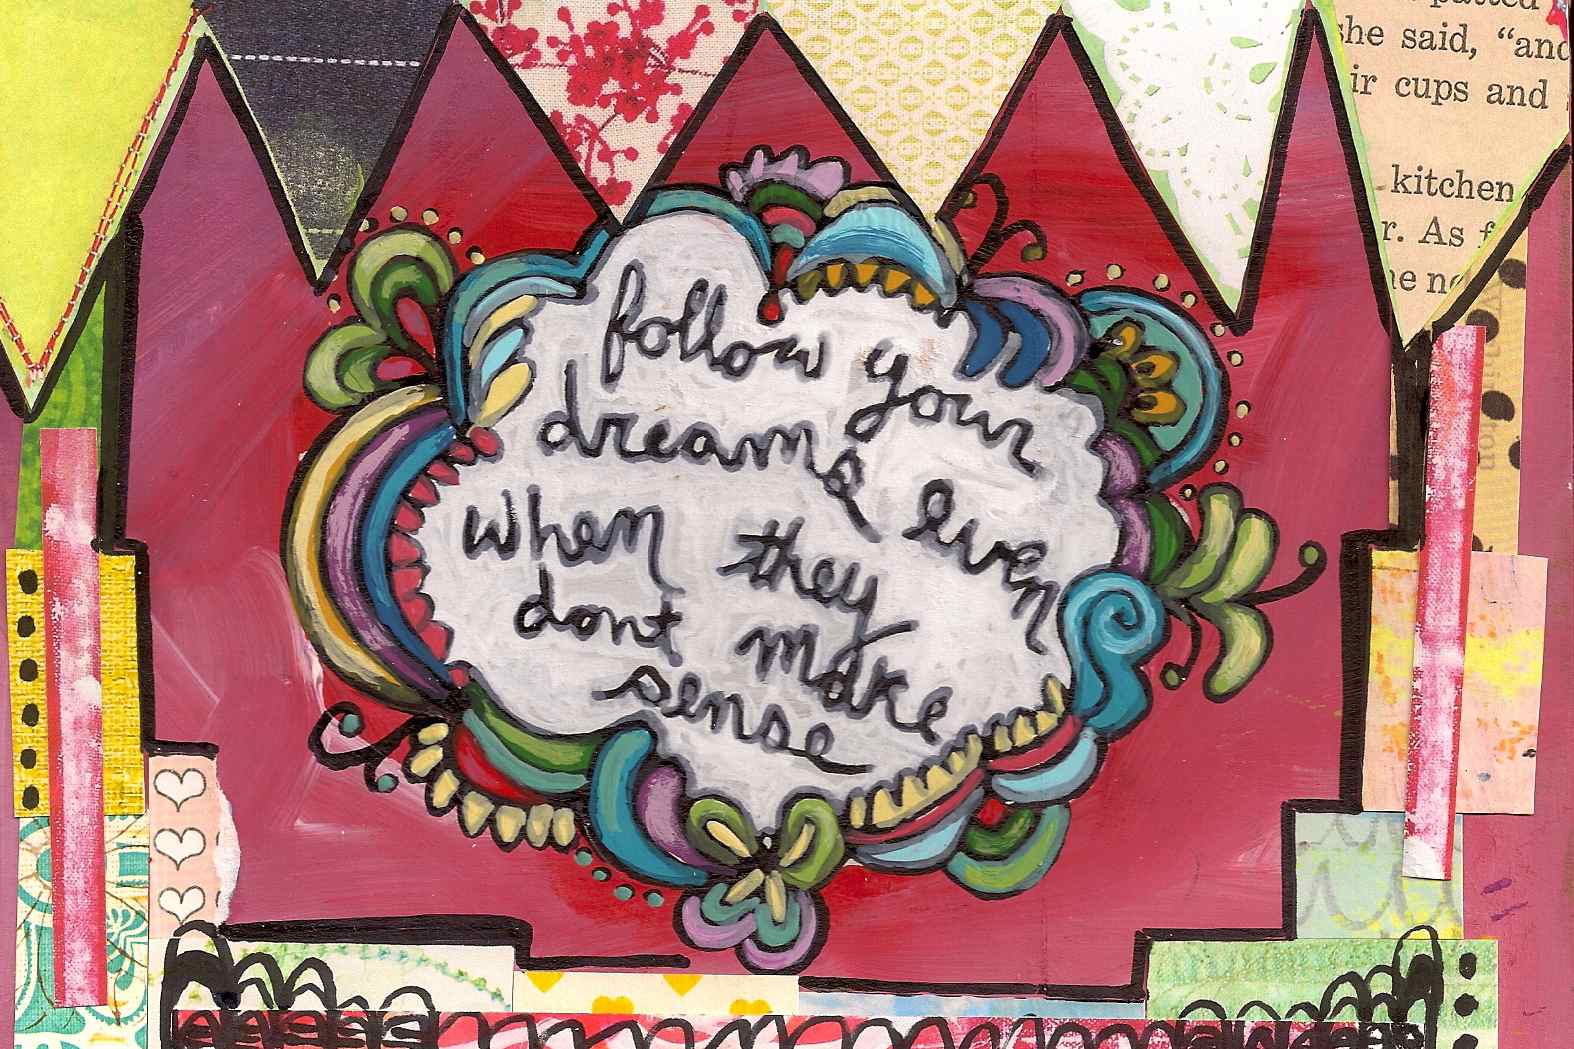 patted
she said, “and
ir cups and
kitchen
r. As
follow your
dreams even
when they
dont make
sense